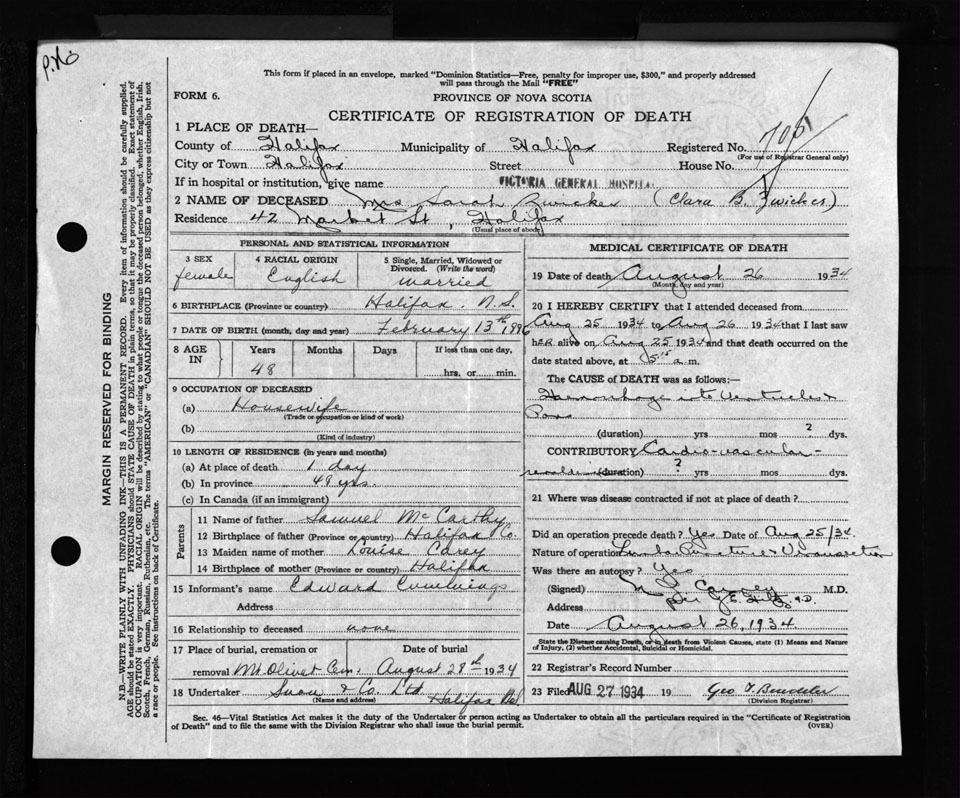 P.K.O
This form if placed in an envelope, marked "Dominion Statistics—Free, penalty for improper use, $300," and properly addressed
will pass through the Mail "FREE"
FORM 6.
PROVINCE OF NOVA SCOTIA
CERTIFICATE OF REGISTRATION OF DEATH
1 PLACE OF DEATH—
County of Halifax Municipality of Halifax Registered No. 7051
(For use of Registrar General only)
City or Town Halifax Street House No.
If in hospital or institution, give name VICTORIA GENERAL HOSPITAL
2 NAME OF DECEASED Mrs Sarah Zwicker (Clara B. Zwicker)
Residence 42 Market St, Halifax
(Usual place of abode)
PERSONAL AND STATISTICAL INFORMATION
3 SEX
female
4 RACIAL ORIGIN
English
5 Single, Married, Widowed or
Divorced. (Write the word)
married
6 BIRTHPLACE (Province or country) Halifax. N.S.
7 DATE OF BIRTH (month, day and year) February 13th,
8 AGE
IN
Years Months Days If less than one day,
48 hrs. or min.
9 OCCUPATION OF DECEASED
(a) Housewife
(Trade or occupation or kind of work)
(b)
(Kind of industry)
10 LENGTH OF RESIDENCE (in years and months)
(a) At place of death 1 day
(b) In province 48 yrs.
(c) In Canada (if an immigrant)
Parents
11 Name of father Samuel McCarthy
12 Birthplace of father (Province or country) Halifax Co.
13 Maiden name of mother Louise Carey
14 Birthplace of mother (Province or country) Halifax
15 Informant's name Edward Cummings
Address
16 Relationship to deceased none
17 Place of burial, cremation or
removal Mt Olivet Cem.
Date of burial
August 28th 1934
18 Undertaker Snow & Co. Ltd
(Name and address) Halifax
MEDICAL CERTIFICATE OF DEATH
19 Date of death August 26 1934
(Month, day and year)
20 I HEREBY CERTIFY that I attended deceased from
Aug 25 1934 to Aug 26 1934 that I last saw
her alive on Aug 25 1934 and that death occurred on the
date stated above, at 5 15 a.m.
The CAUSE of DEATH was as follows:—
Haemorrhage into Ventricles &
Pons
(duration) yrs mos ? dys.
CONTRIBUTORY Cardio-vascular-
(duration) ? yrs mos dys.
21 Where was disease contracted if not at place of death?
Did an operation precede death? Yes Date of Aug 25/34
Nature of operation Lumbar Puncture & Venesection
Was there an autopsy? Yes
(Signed) M.D.
Address
Date August 26, 1934
State the Disease causing Death, or in death from Violent Causes, state (1) Means and Nature
of Injury, (2) whether Accidental, Suicidal or Homicidal.
22 Registrar's Record Number
23 Filed AUG 27 1934 19
(Division Registrar)
Sec. 46—Vital Statistics Act makes it the duty of the Undertaker or person acting as Undertaker to obtain all the particulars required in the "Certificate of Registration
of Death" and to file the same with the Division Registrar who shall issue the burial permit. (OVER)
MARGIN RESERVED FOR BINDING
N.B.—WRITE PLAINLY WITH UNFADING INK—THIS IS A PERMANENT RECORD. Every item of information should be carefully supplied.
AGE should be stated EXACTLY. PHYSICIANS should STATE CAUSE OF DEATH in plain terms, so that it may be properly classified. Exact statement of
OCCUPATION is very important. RACIAL ORIGIN will be described by stating to what people or tongue the deceased person belonged, whether English, Irish,
Scotch, French, German, Russian, Ruthenian, etc. The terms "AMERICAN" or "CANADIAN" SHOULD NOT BE USED as they express citizenship but not
a race or people. See instructions on back of Certificate.